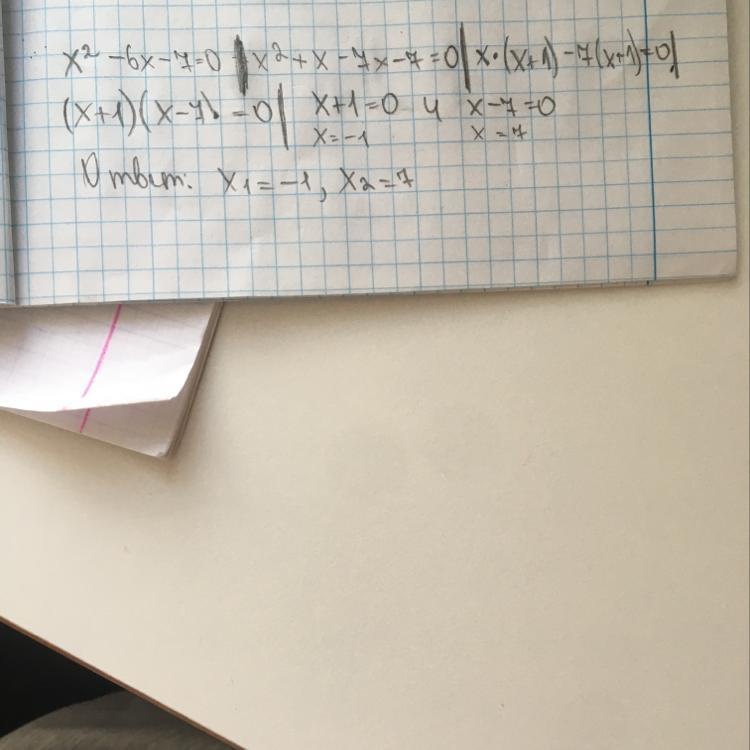 x² - 6x - 7 = 0 | x² + x - 7x - 7 = 0 | x · (x+1) - 7(x+1) = 0 |
(x+1)(x-7) = 0 | x+1 = 0 и x-7 = 0
x = -1 x = 7
Ответ: x₁ = -1, x₂ = 7